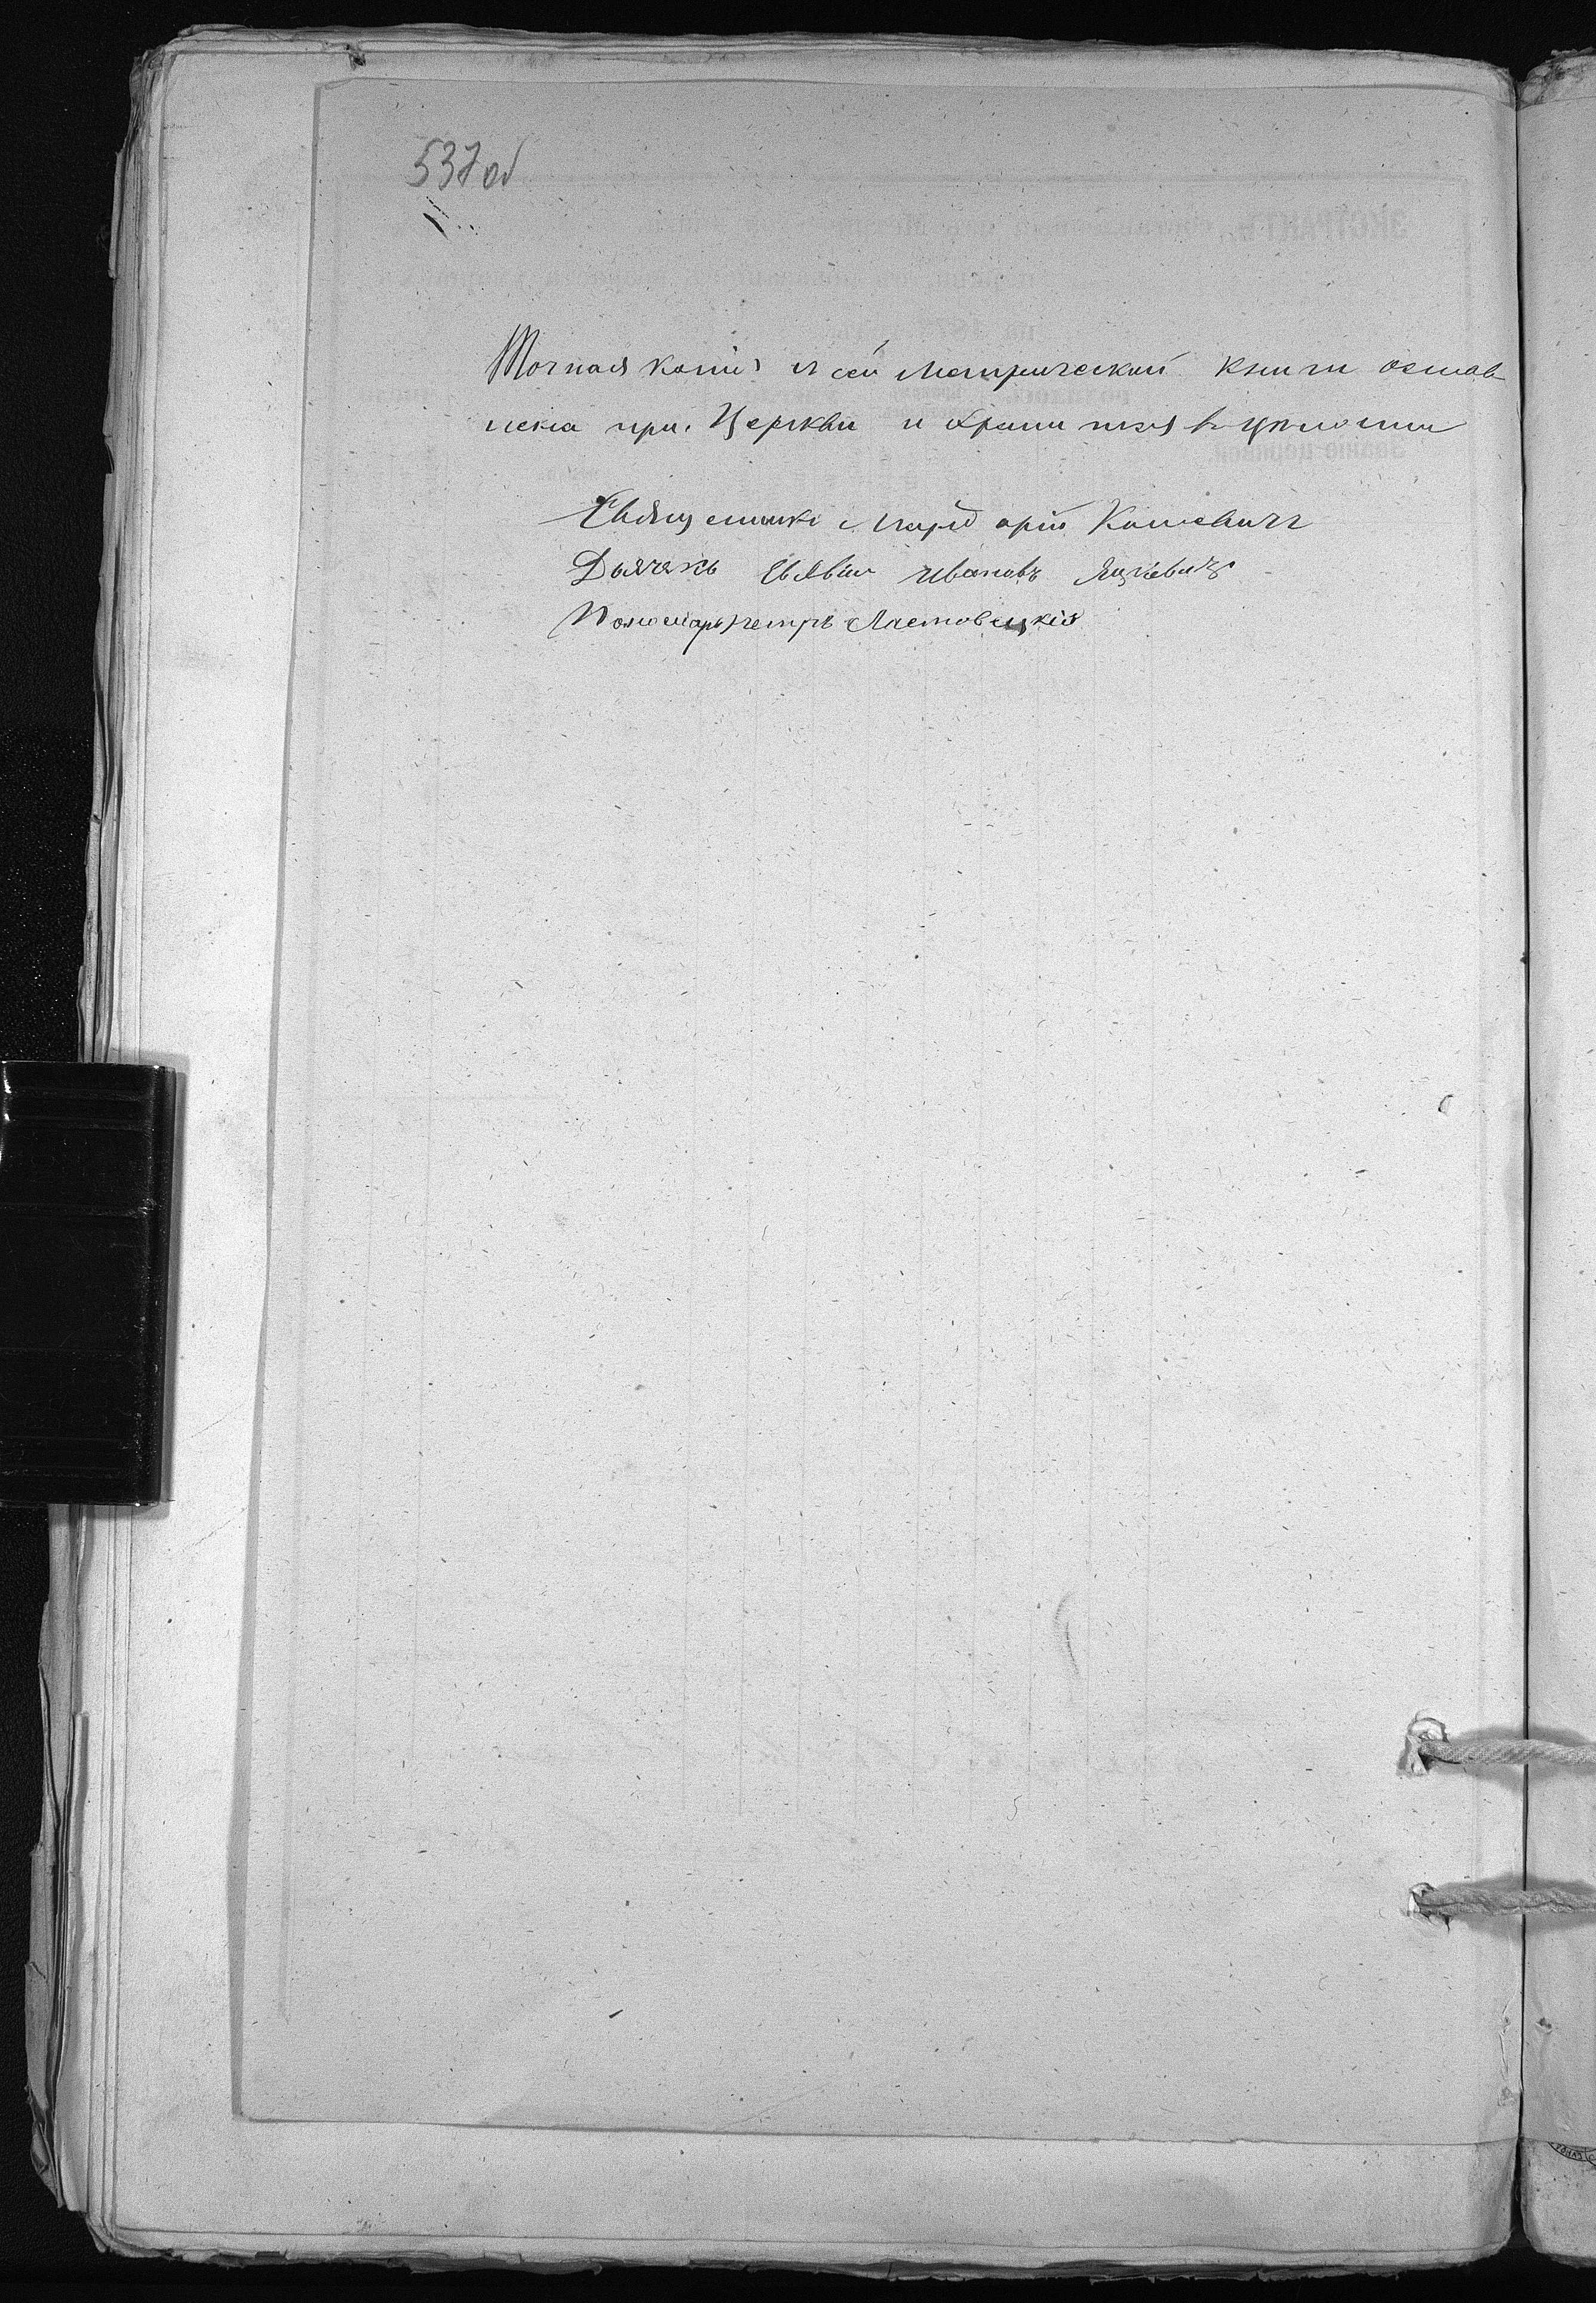 537об
Точная копія сей Метрической книги остав
лена при Церкви и хранится въ цѣлости
Священникъ Маркъ Котовичъ
Дьячекъ Иванов Яцкевичъ
Пономарь Петръ Ластовецкій